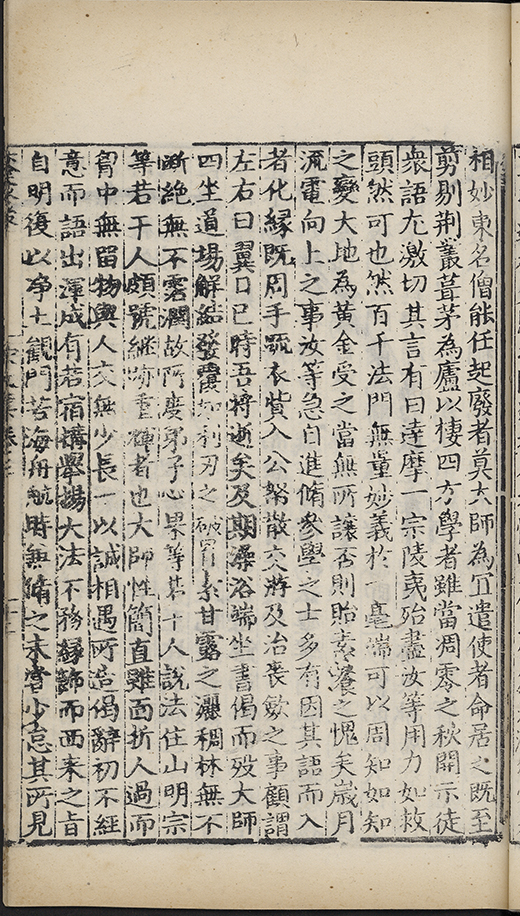 相妙東名僧能任起廢者莫大師為宜遣使者命居之既至
剪剔荆叢葺茅為廬以棲四方學者雖當凋零之秋開示徒
衆語尤激切其言有曰達摩一宗陵夷殆盡汝等用力如救
頭然可也然百千法門無量妙義於一毫端可以周知如知
之變大地為黃金受之當無所讓否則貽素飡之愧矣歲月
流電向上之事汝等急自進脩參學之士多有因其語而入
者化縁既周手疏衣貲入公帑散交游及治喪斂之事顧謂
左右曰翼日巳時吾將逝矣及期澡浴端坐書偈而歿大師
四坐道場解結發覆如利刃之破胃索甘露之灑稠林無不
斷絶無不霑潤故所度弟子心學等若干人說法住山明宗
等若干人頗號継跡重輝者也大師性簡直雖面折人過而
胷中無留物與人交無少長一以誠相遇所造偈辭初不經
意而語出渾成有若宿搆舉揚大法不務縁飾而西来之旨
自明復以淨土觀門苦海舟航時無脩之未嘗少怠其所見